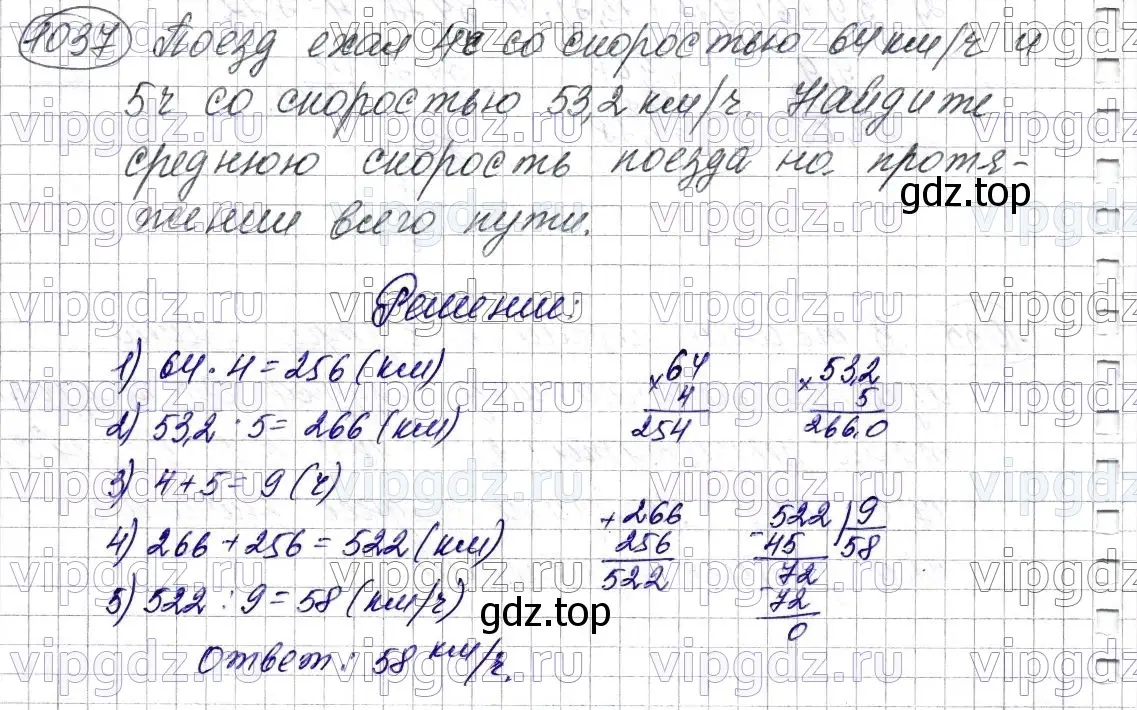 1037 Поезд ехал 4ч со скоростью 64 км/ч и
5ч со скоростью 53,2 км/ч. Найдите
среднюю скорость поезда на протя-
жении всего пути.
gdz.top
Решение:
1) 64 · 4 = 256 (км)
2) 53,2 · 5 = 266 (км)
3) 4 + 5 = 9 (ч)
4) 266 + 256 = 522 (км)
5) 522 : 9 = 58 (км/ч)
Ответ: 58 км/ч.
× 64
4
254
× 53,2
5
266,0
+ 266
256
522
- 522 | 9
45 58
72
- 72
0
gdz.top
vipgdz.ru